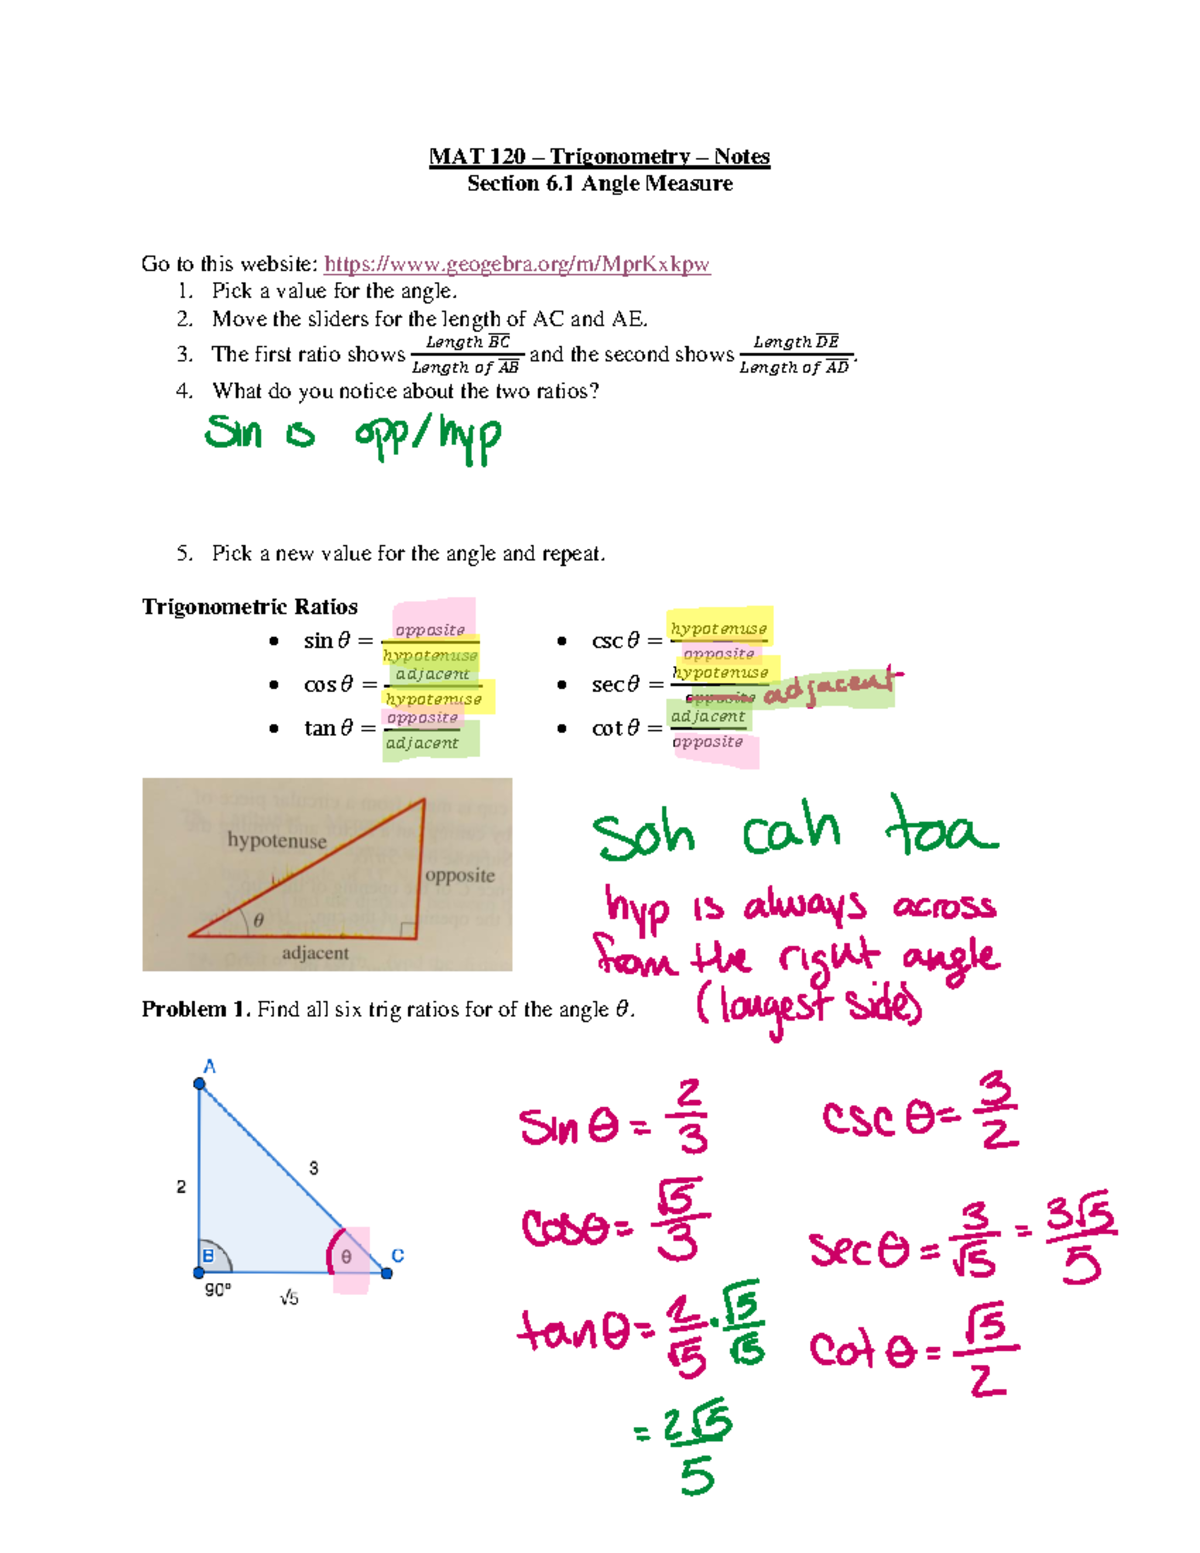 MAT 120 – Trigonometry – Notes
Section 6.1 Angle Measure
Go to this website: https://www.geogebra.org/m/MprKxkpw
1. Pick a value for the angle.
2. Move the sliders for the length of AC and AE.
3. The first ratio shows Length BC / Length of AB and the second shows Length DE / Length of AD.
4. What do you notice about the two ratios?
Sin is opp/hyp
5. Pick a new value for the angle and repeat.
Trigonometric Ratios
• sin θ = opposite / hypotenuse
• cos θ = adjacent / hypotenuse
• tan θ = opposite / adjacent
• csc θ = hypotenuse / opposite
• sec θ = hypotenuse / opposite adjacent
• cot θ = adjacent / opposite
hypotenuse
opposite
θ
adjacent
soh cah toa
hyp is always across
from the right angle
(longest side)
Problem 1. Find all six trig ratios for of the angle θ.
A
3
2
B
θ
C
90°
√5
sin θ = 2/3
cos θ = √5/3
tan θ = 2/√5 · √5/√5
= 2√5/5
csc θ = 3/2
sec θ = 3/√5 = 3√5/5
cot θ = √5/2